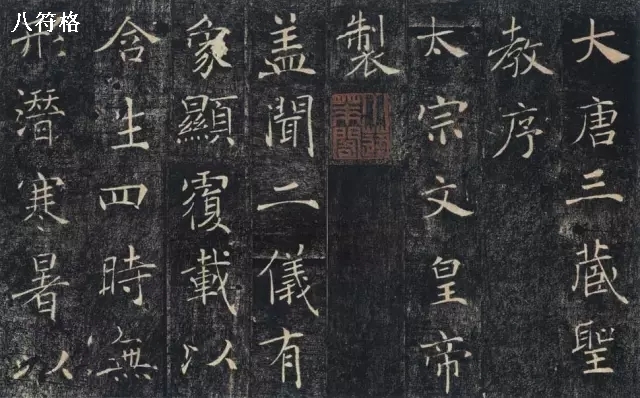 八符格
大唐三藏聖
教序
太宗文皇帝
製
盖聞二儀有
象顯覆載以
含生四時無
形潛寒暑以